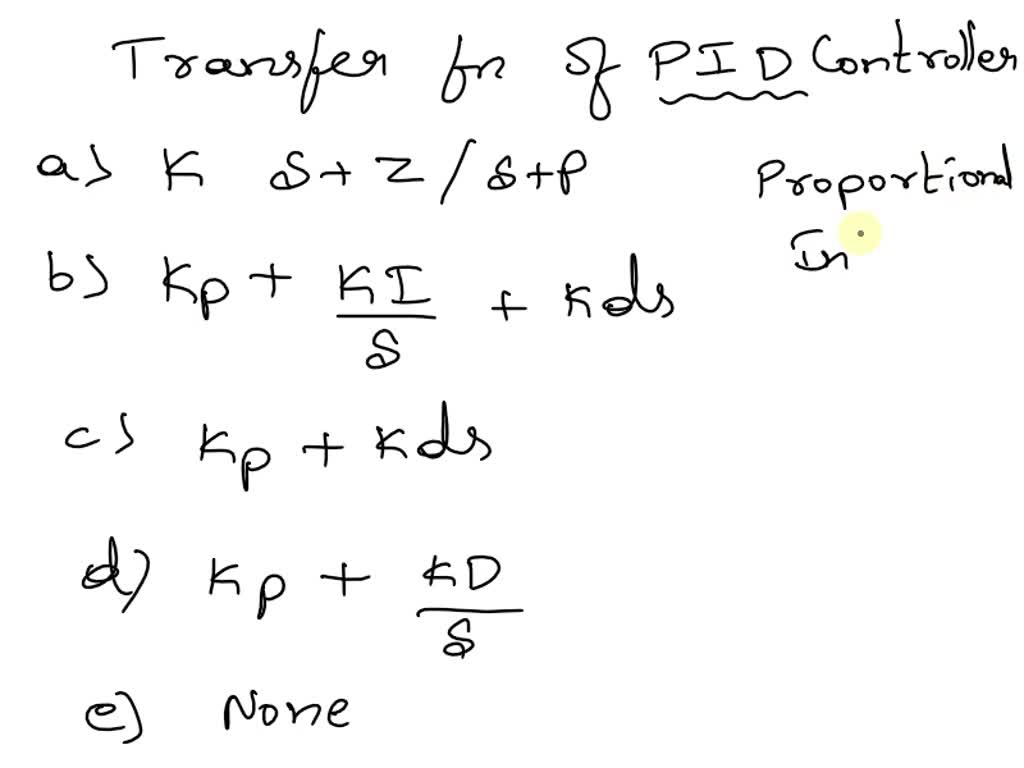 Transfer fn of PID Controller
a) K s+z/s+p
Proportional
In
b) Kp + KI/s + Kds
c) Kp + Kds
d) Kp + KD/s
e) None